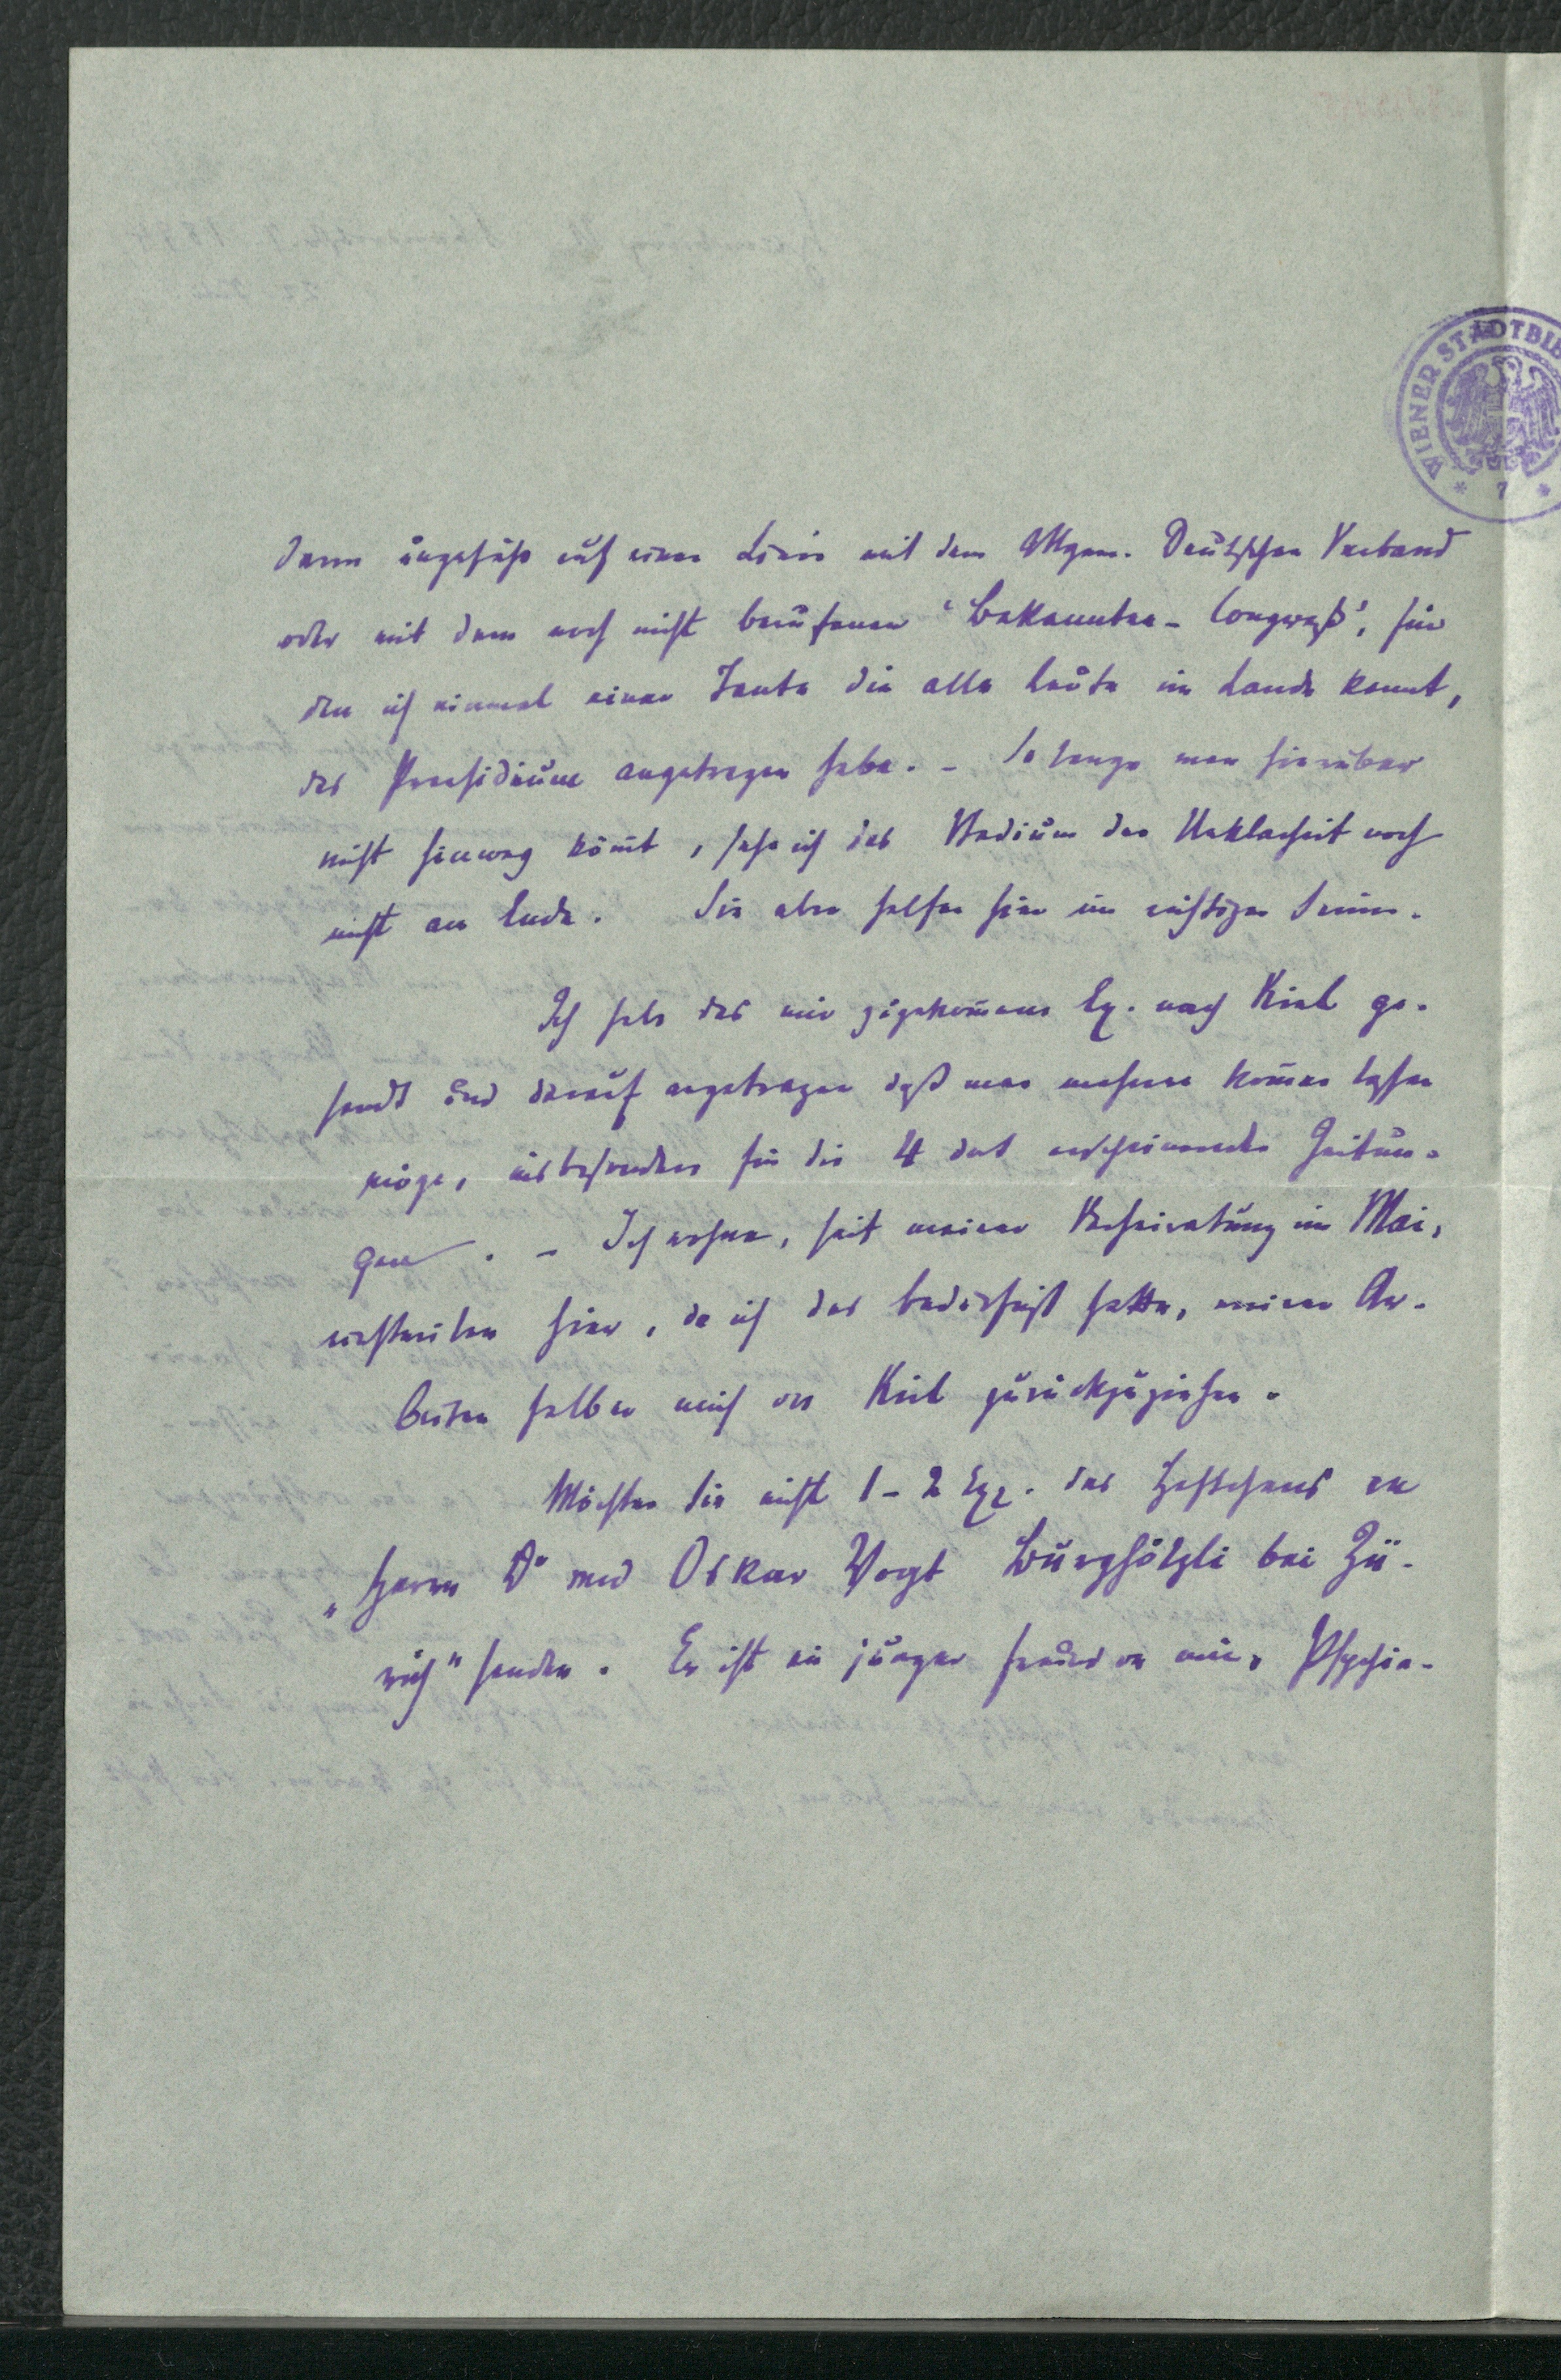 dann ungefähr auf einer Linie mit dem Allgem. Deutschen Verband
oder mit dem noch nicht berufenen 'Bekannten-Congreß', für
den ich einmal einer Tante die alle Leute im Lande kennt,
das Praesidium angetragen habe. – So lange man hierüber
nicht hinweg kom̄t, sehe ich das Stadium der Unklarheit noch
nicht am Ende. Sie aber helfen hier im richtigen Sinne.
Ich habe das mir zugekom̄ene Ex. nach Kiel ge-
sandt und darauf angetragen daß man mehrere kom̄en lassen
möge, insbesondere für die 4 dort erscheinenden Zeitun-
gen. – Ich wohne, seit meiner Verheiratung im Mai,
einstweilen hier, da ich das Bedürfniß hatte, meiner Ar-
beiten halber mich von Kiel zurückzuziehen.
Möchten Sie nicht 1-2 Exx. des Heftchens an
„Herrn Dr med Oskar Vogt Burghölzli bei Zü-
rich" senden. Er ist ein junger Freund von mir, Psychia-
WIENER STADTBIB
* 7 *